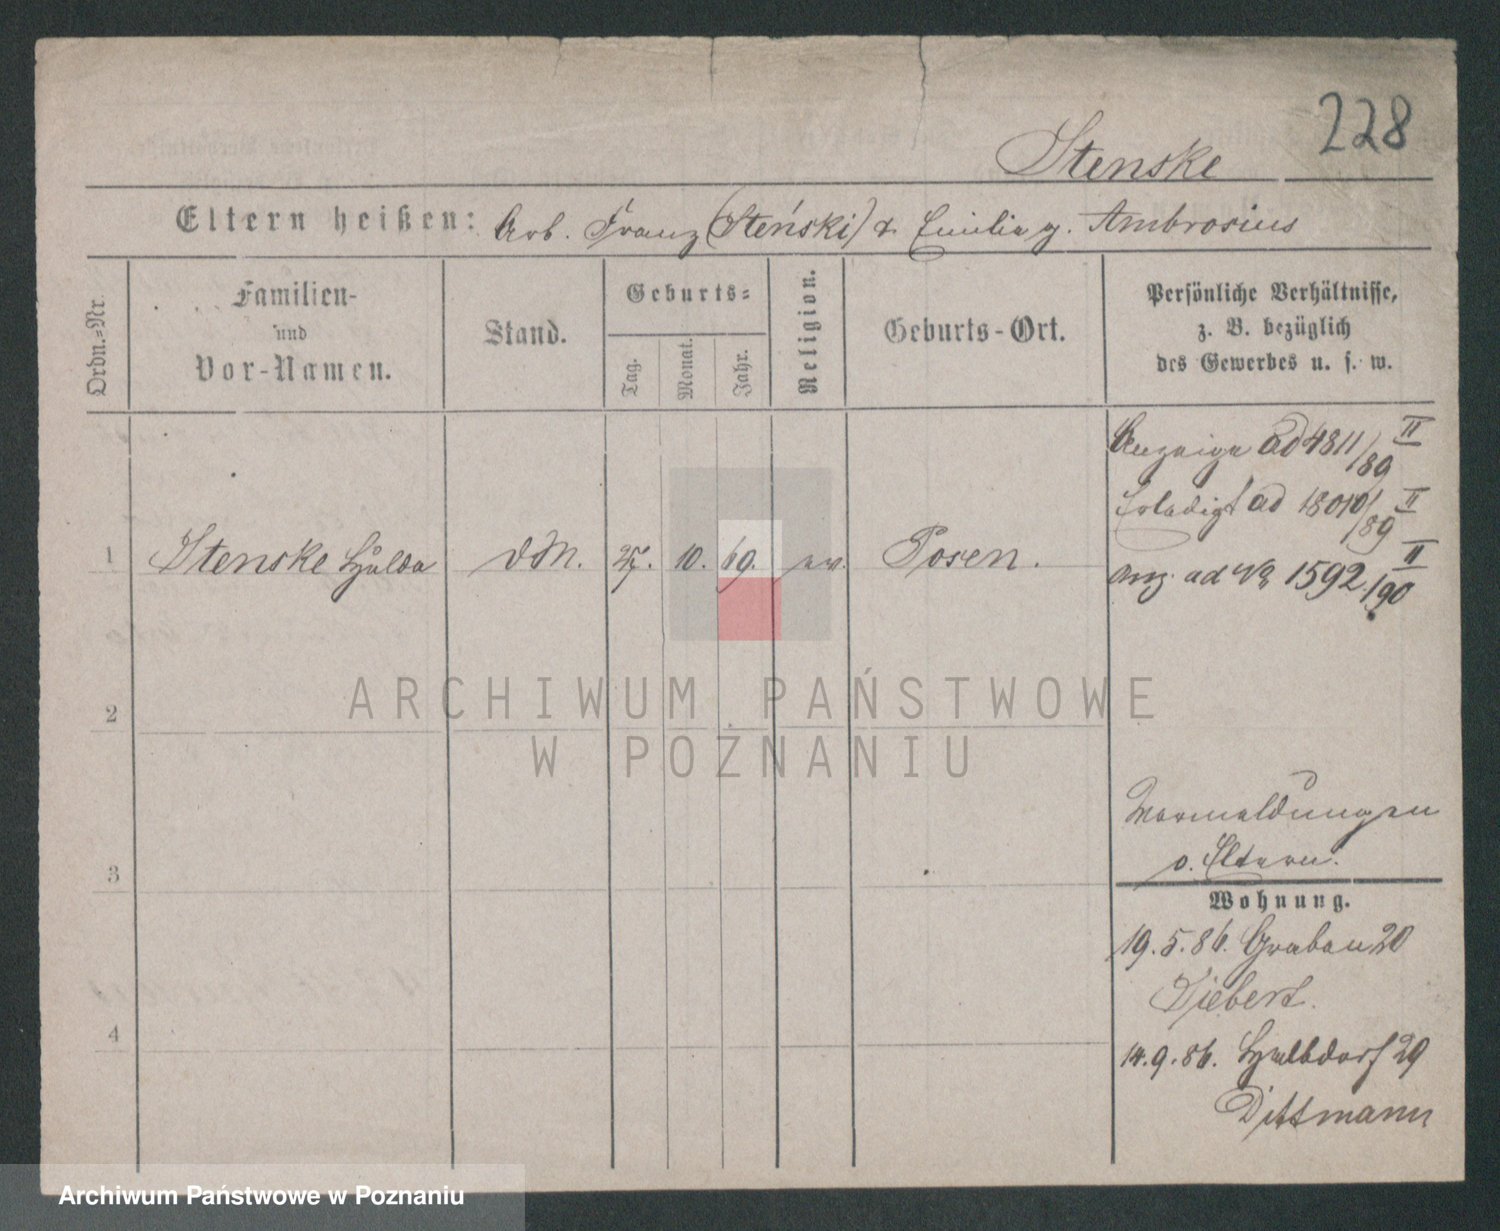 228
Stenske
Eltern heißen: Arb. Franz (Steński) & Emilie g. Ambrosius
Ordn.-Nr.
Familien-
und
Vor-Namen.
Stand.
Geburts-
Tag.
Monat.
Jahr.
Religion.
Geburts-Ort.
Persönliche Verhältnisse,
z. B. bezüglich
des Gewerbes u. s. w.
1 Stenske Hulda DM. 10. 69. ev. Posen.
Anzeige ad 4811/89 II
Erledigt ad 18010/89 II
Anz. ad No 1592/90 II
2
3
4
Vormeldungen
s. Eltern.
Wohnung.
19.5.86. Graben 20
Siebert.
14.9.86. Halbdorf 29
Dittmann
ARCHIWUM PAŃSTWOWE
W POZNANIU
Archiwum Państwowe w Poznaniu